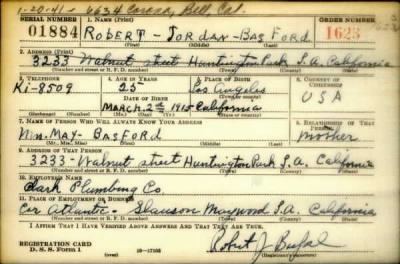 1-20-41- 6634 Corona, Bell, Cal.
SERIAL NUMBER 1. Name (Print) ORDER NUMBER
01884 ROBERT - JORDAN - BASFORD 1623
(First) (Middle) (Last)
2. Address (Print)
3233 Walnut street Huntington Park L.A. California
(Number and street or R. F. D. number) (Town) (County) (State)
3. Telephone 4. Age in Years 5. Place of Birth 6. Country of Citizenship
Ki-8509 25 Los Angeles USA
Date of Birth (Town or county)
MARCH 2nd 1915 California
(Exchange) (Number) (Mo.) (Day) (Yr.) (State or country)
7. Name of Person Who Will Always Know Your Address 8. Relationship of That Person
Mrs. MAY - BASFORD Mother
(Mr., Mrs., Miss) (First) (Middle) (Last)
9. Address of That Person
3233 - Walnut street Huntington Park L.A. California
(Number and street or R. F. D. number) (Town) (County) (State)
10. Employer's Name
Clark Plumbing Co.
11. Place of Employment or Business
Cor Atlantic & Slauson Maywood L.A. California
(Number and street or R. F. D. number) (Town) (County) (State)
I Affirm That I Have Verified Above Answers And That They Are True.
REGISTRATION CARD
D. S. S. Form 1 16-17105
Robert J Basford